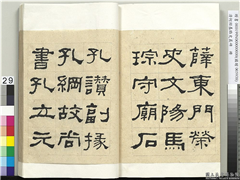 薛東門榮
史文陽馬
琮守廟石
孔讚副掾
孔綱故尚
書孔立元
29